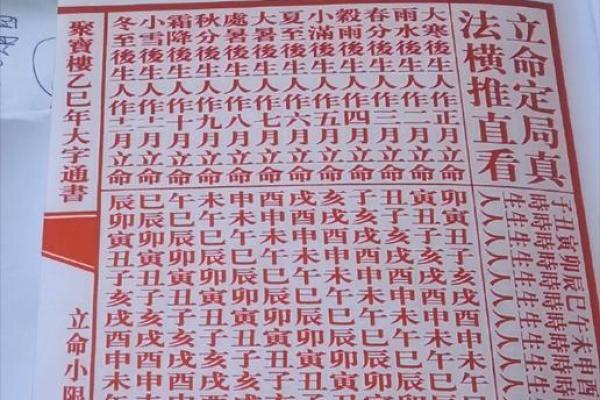 立命定局真
法橫推直看
大寒後生人作正月立命
雨水後生人作二月立命
春分後生人作三月立命
穀雨後生人作四月立命
小滿後生人作五月立命
夏至後生人作六月立命
大暑後生人作七月立命
處暑後生人作八月立命
秋分後生人作九月立命
霜降後生人作十月立命
小雪後生人作十一月立命
冬至後生人作十二月立命
子時生人
丑時生人
寅時生人
卯時生人
辰時生人
巳時生人
午時生人
未時生人
申時生人
酉時生人
卯寅丑子亥戌酉申未午
寅丑子亥戌酉申未午巳
丑子亥戌酉申未午巳辰
子亥戌酉申未午巳辰卯
亥戌酉申未午巳辰卯寅
戌酉申未午巳辰卯寅丑
酉申未午巳辰卯寅丑子
申未午巳辰卯寅丑子亥
未午巳辰卯寅丑子亥戌
午巳辰卯寅丑子亥戌酉
巳辰卯寅丑子亥戌酉申
辰卯寅丑子亥戌酉申未
聚寶樓乙巳年大字通書
立命小限